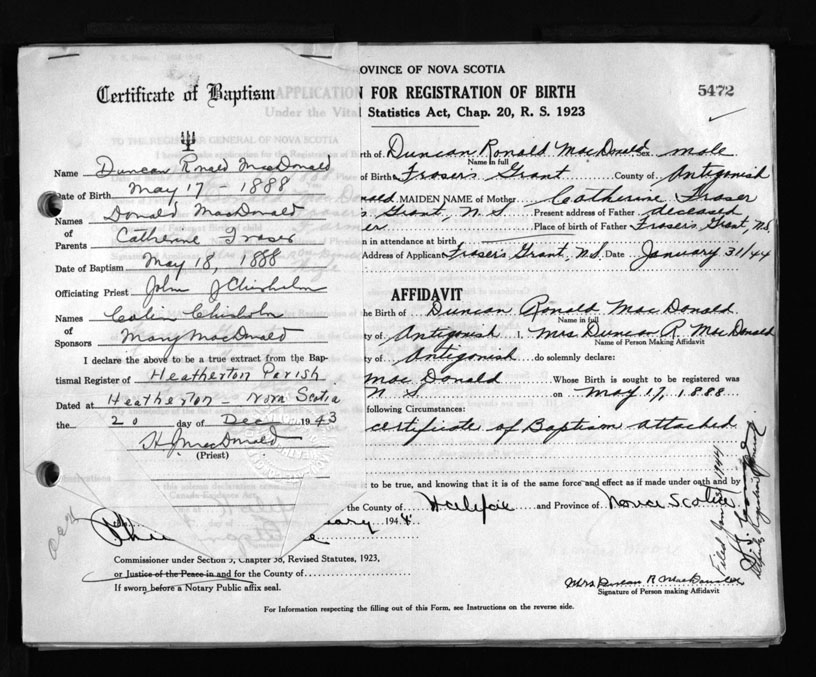 Certificate of Baptism
Name Duncan Ronald MacDonald
Date of Birth May 17 - 1888
Names Donald MacDonald
of
Parents Catherine Fraser
Date of Baptism May 18, 1888
Officiating Priest John J Chisholm
Names Colin Chisholm
of
Sponsors Mary MacDonald
I declare the above to be a true extract from the Bap-
tismal Register of Heatherton Parish
Dated at Heatherton - Nova Scotia
the 20 day of Dec 1943
H J MacDonald
(Priest)
OVINCE OF NOVA SCOTIA
APPLICATION FOR REGISTRATION OF BIRTH
5472
Under the Vital Statistics Act, Chap. 20, R. S. 1923
TO THE REGISTRAR GENERAL OF NOVA SCOTIA
rth of Duncan Ronald MacDonald Sex male
Name in full
of Birth Fraser's Grant County of Antigonish
nald MAIDEN NAME of Mother Catherine Fraser
s Grant, N.S. Present address of Father deceased
er Place of birth of Father Fraser's Grant, N.S.
n in attendance at birth
Address of Applicant Fraser's Grant, N.S. Date January 31/44
AFFIDAVIT
the Birth of Duncan Ronald MacDonald
Name in full
ty of Antigonish I, Mrs Duncan R. MacDonald
Name of Person Making Affidavit
ty of Antigonish do solemnly declare:
MacDonald Whose Birth is sought to be registered was
N S. on May 17, 1888
following Circumstances:
certificate of Baptism attached
it to be true, and knowing that it is of the same force and effect as if made under oath and by
the County of Halifax and Province of Nova Scotia
ary 1944
Commissioner under Section 5, Chapter 38, Revised Statutes, 1923,
or Justice of the Peace in and for the County of
If sworn before a Notary Public affix seal.
Mrs Duncan R MacDonald
Signature of Person making Affidavit
For Information respecting the filling out of this Form, see Instructions on the reverse side.